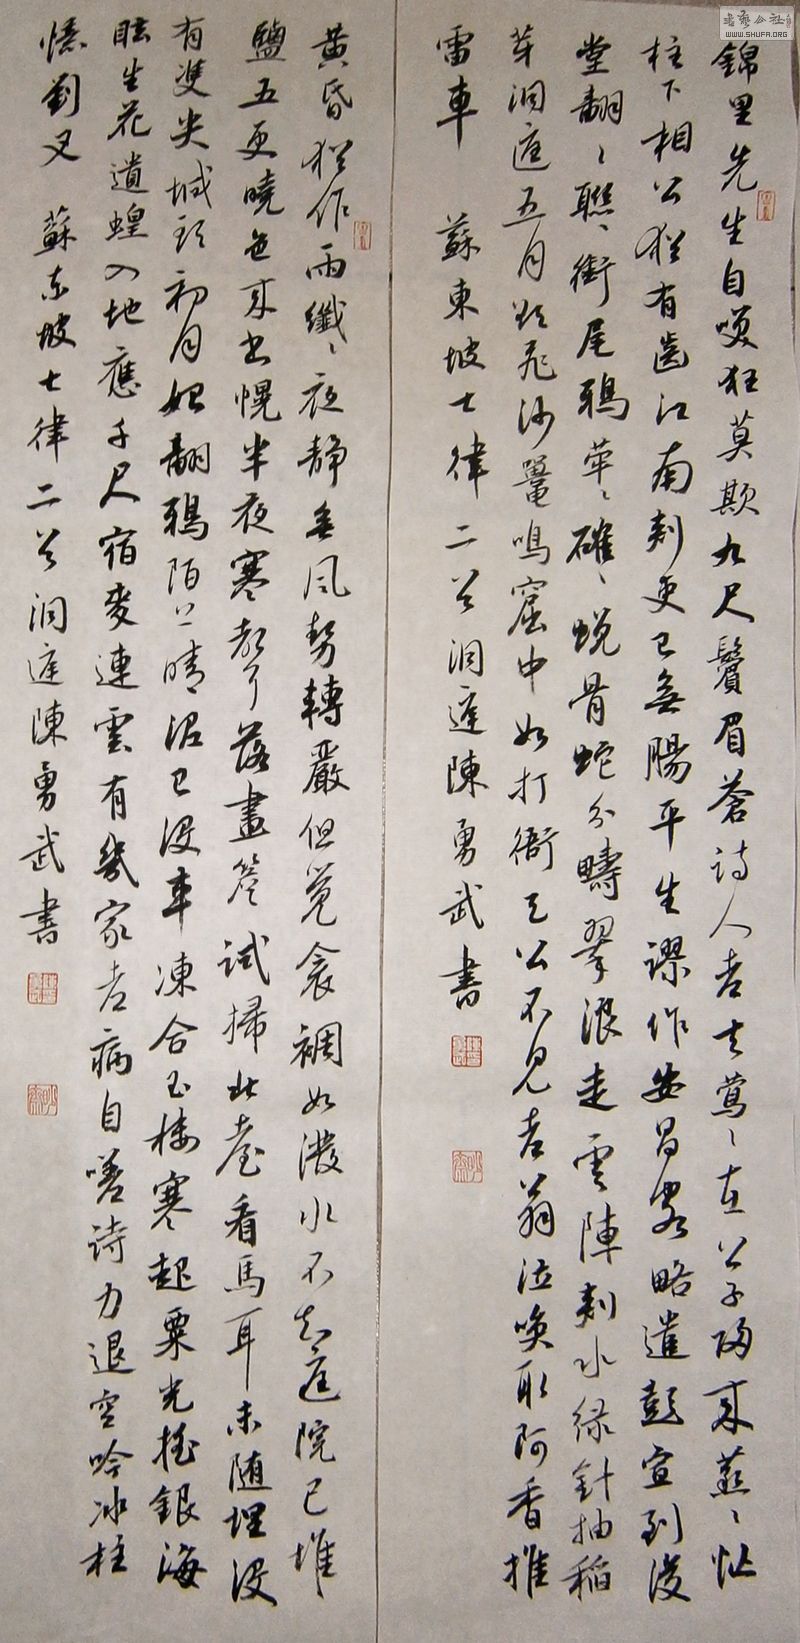 錦里先生自笑狂莫欺九尺鬢眉蒼詩人老去鶯〻在公子歸來燕〻忙
柱下相公猶有齒江南刺吏已無腸平生謬作安昌客略遣彭宣到後
堂翻〻聯〻銜尾鴉犖〻確〻蛻骨蛇分疇翠浪走雲陣刺水綠針抽稻
芽洞庭五月欲飛沙鼉鳴窟中如打衙天公不見老翁泣喚取阿香推
雷車 蘇東坡七律二首洞庭陳勇武書
黃昏猶作雨纖〻夜靜無風勢轉嚴但覺衾裯如潑水不知庭院已堆
鹽五更曉色來書幌半夜寒聲落畫簷試掃北臺看馬耳未隨埋沒
有雙尖城頭初日始翻鴉陌上晴泥已沒車凍合玉樓寒起粟光搖銀海
眩生花遺蝗入地應千尺宿麥連雲有幾家老病自嗟詩力退空吟冰柱
憶劉叉 蘇東坡七律二首洞庭陳勇武書
書藝公社
WWW.SHUFA.ORG